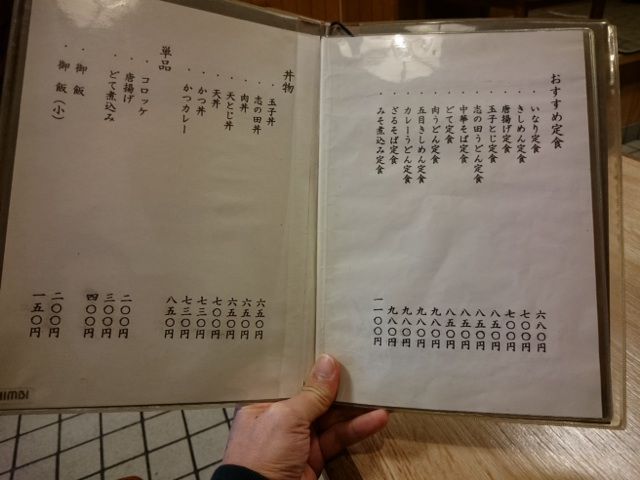 おすすめ定食
・いなり定食 六八〇円
・きしめん定食 七〇〇円
・唐揚げ定食 七〇〇円
・玉子とじ定食 八五〇円
・志の田うどん定食 八五〇円
・中華そば定食 八五〇円
・どて定食 八五〇円
・肉うどん定食 九八〇円
・五目きしめん定食 九八〇円
・カレーうどん定食 九八〇円
・ざるそば定食 九八〇円
・みそ煮込み定食 一一〇〇円
丼物
・玉子丼 六五〇円
・志の田丼 六五〇円
・肉丼 六五〇円
・天とじ丼 七〇〇円
・天丼 七三〇円
・かつ丼 七三〇円
・かつカレー 八五〇円
単品
・コロッケ 二〇〇円
・唐揚げ 三〇〇円
・どて煮込み 四〇〇円
・御飯 二〇〇円
・御飯(小) 一五〇円